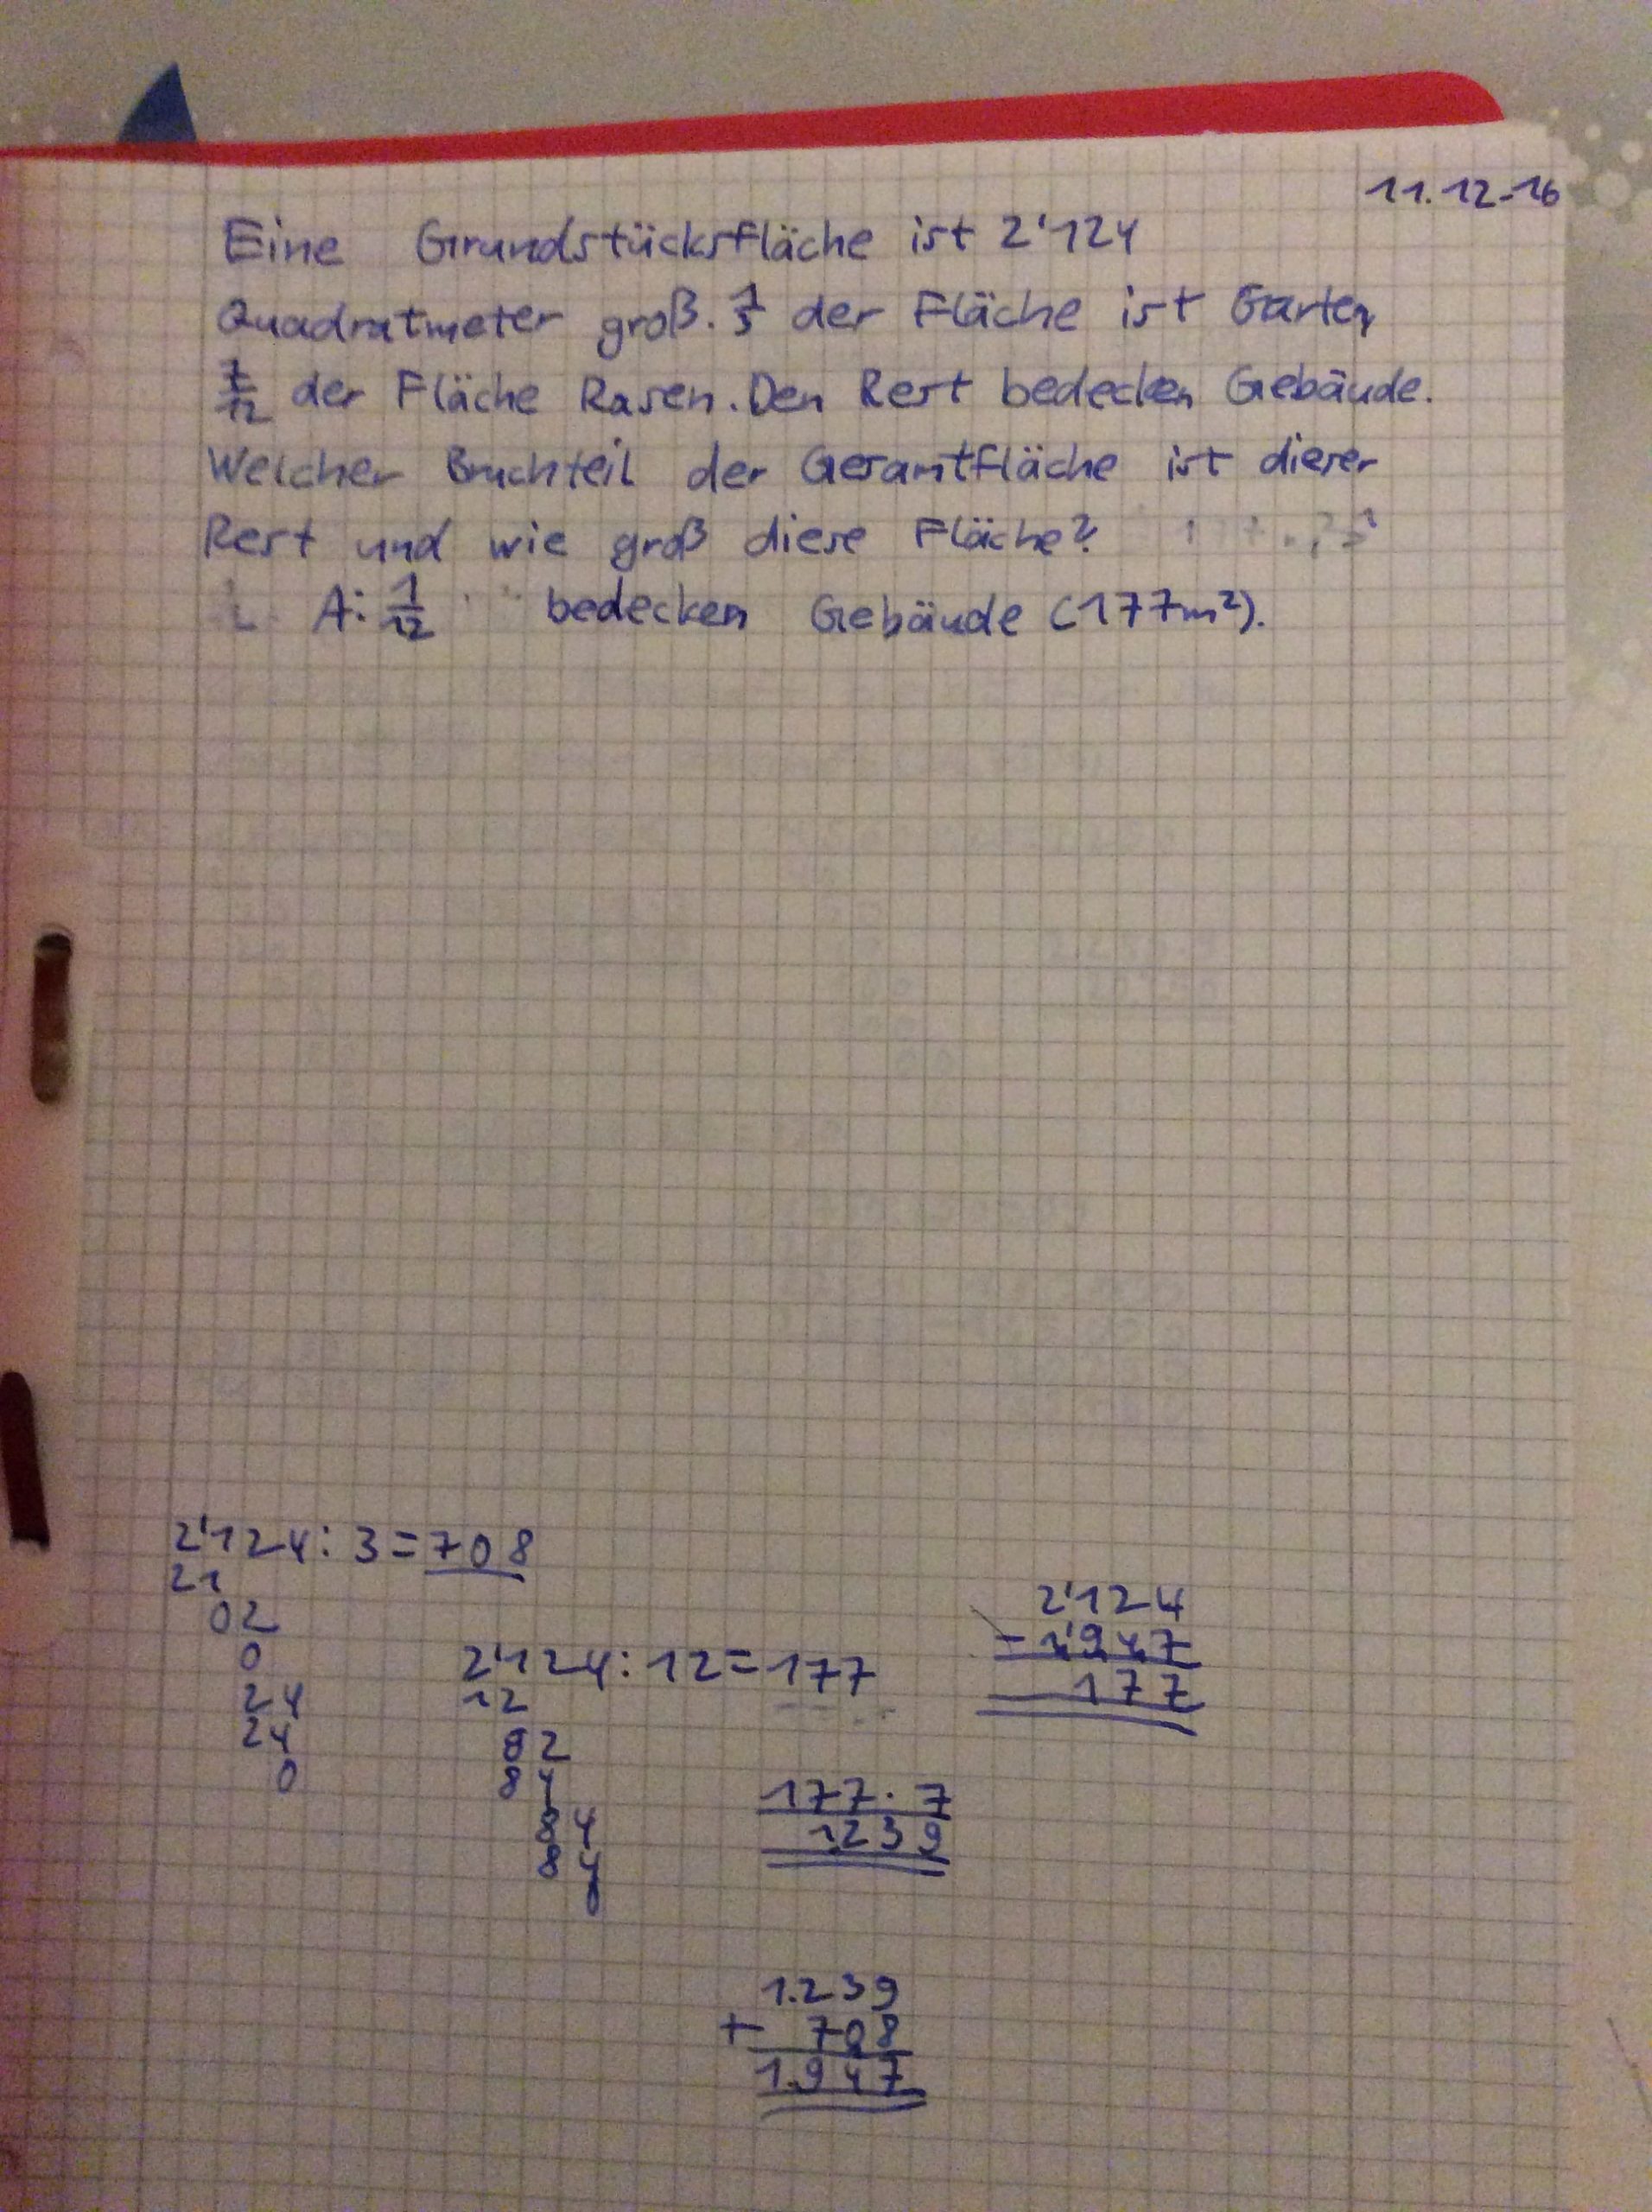 11.12-16
Eine Grundstücksfläche ist 2'124
Quadratmeter groß. 1/3 der Fläche ist Garten
7/12 der Fläche Rasen. Den Rest bedecken Gebäude.
Welcher Bruchteil der Gesamtfläche ist dieser
Rest und wie groß diese Fläche?
A: 1/12 bedecken Gebäude (177m²).
2'124 : 3 = 708
21
02
0
24
24
0
2'124 : 12 = 177
12
92
84
84
84
0
2'124
- 1'947
177
177 · 7
1239
1.239
+ 708
1.947